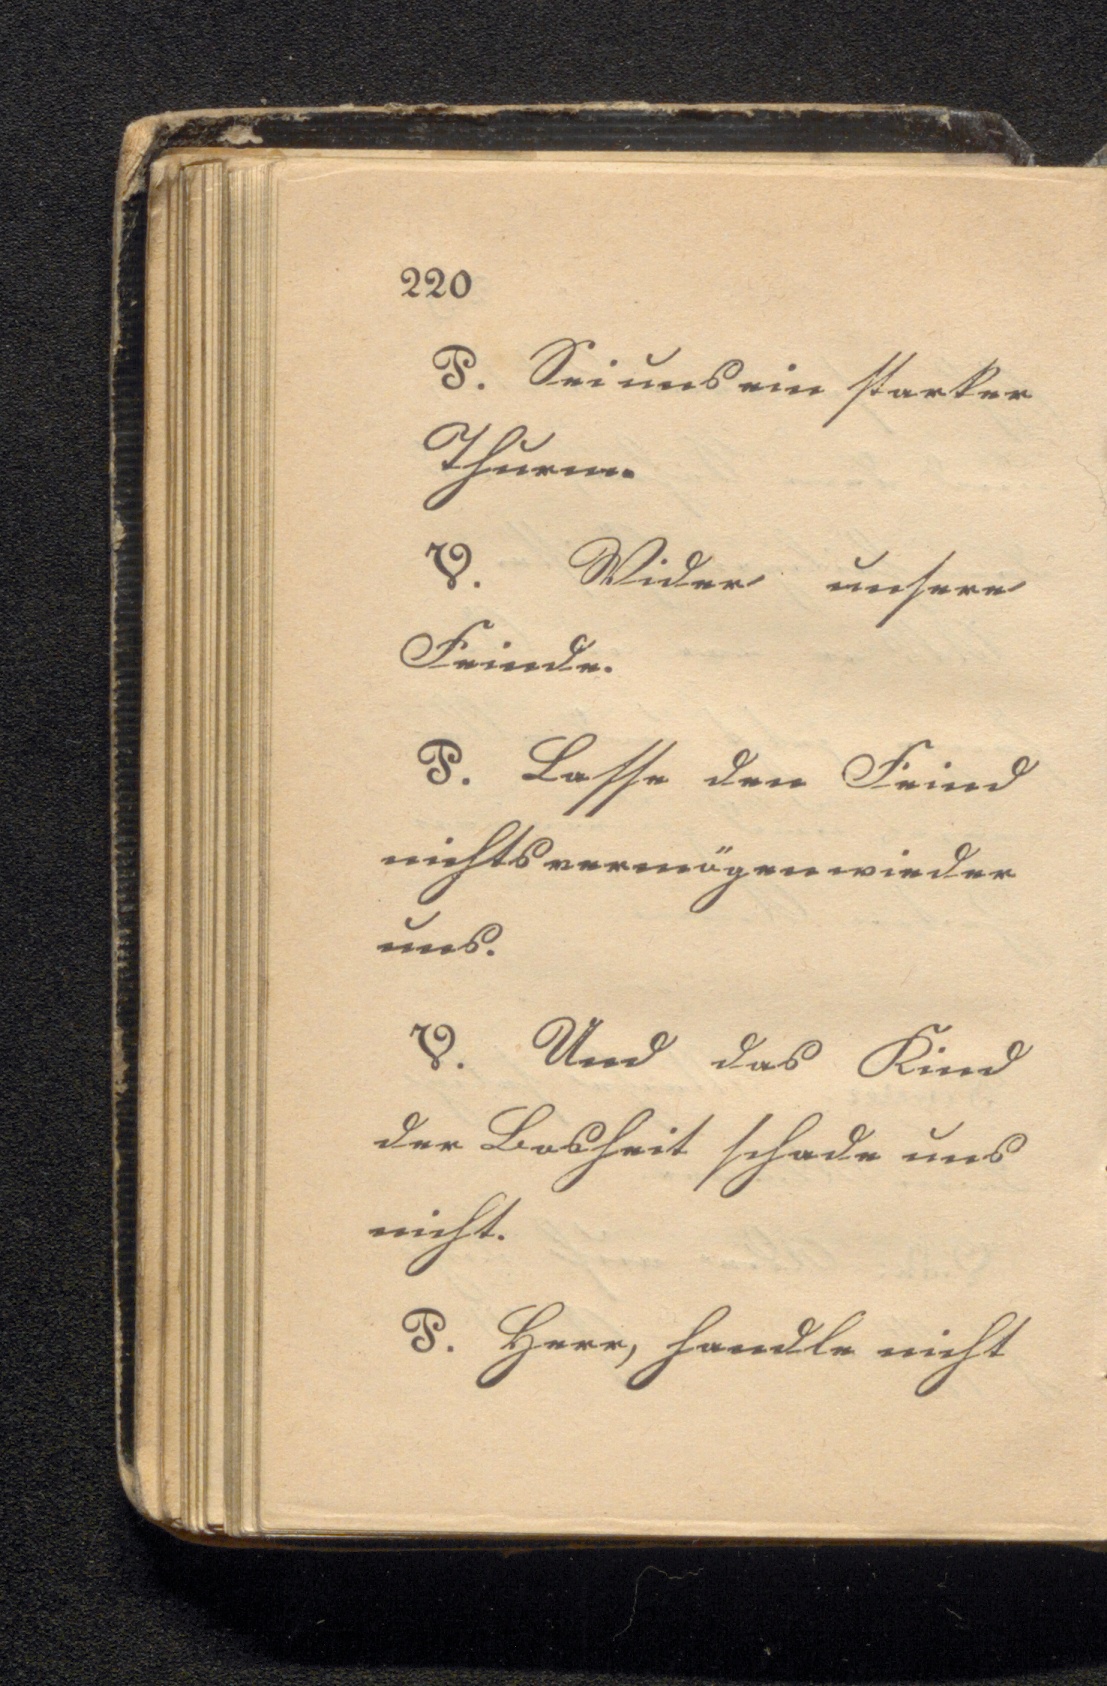 220
P. Sei uns ein starker
Thurm.
V. Wider unsere
Feinde.
P. Lasse den Feind
nichts vermögen wieder
uns.
V. Und das Kind
der Bosheit schade uns
nicht.
P. Herr, handle nicht